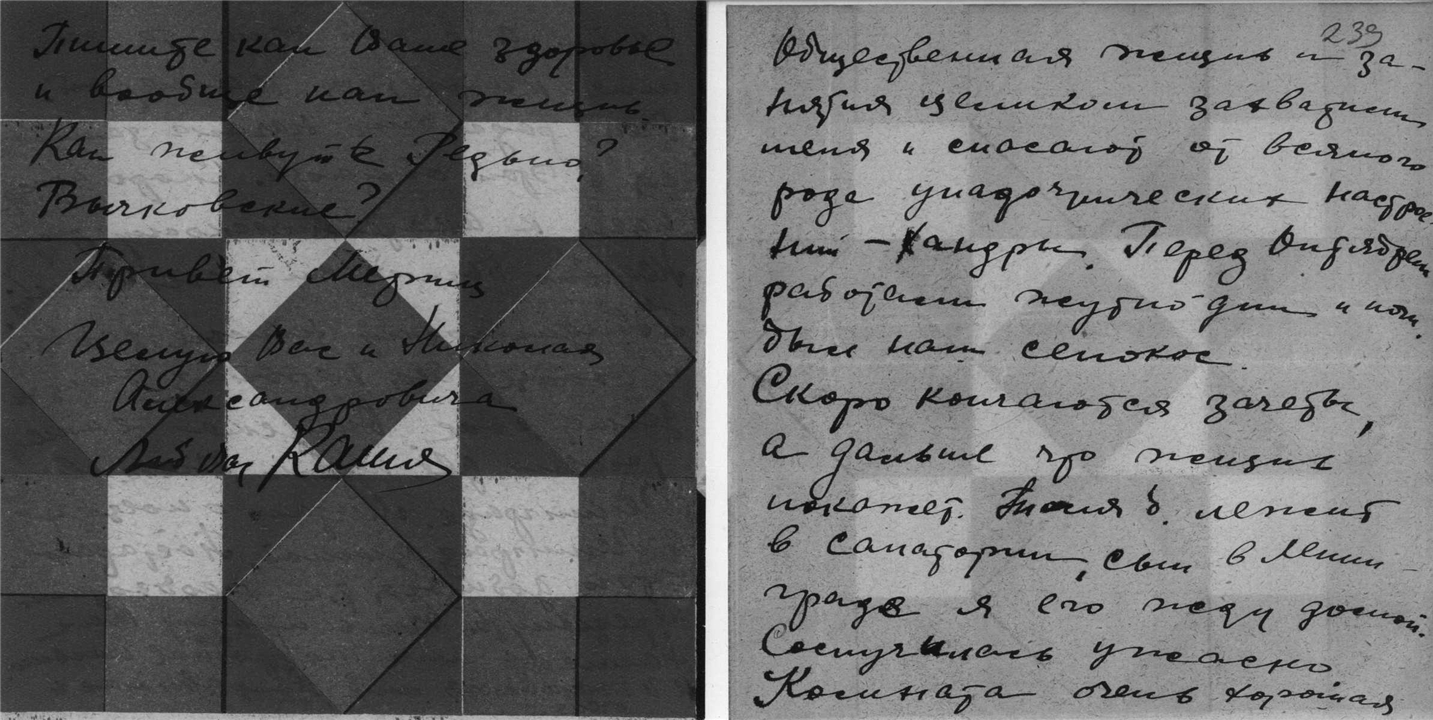 Пишите как Ваше здоровье
и вообще как жизнь.
Как живут Редько?
Бычковские?
Привет Мерпиц
Целую Вас и Николая
Александровича
Любящ Каши
239
Общественная жизнь и за-
нятия целиком захватили
меня и спасают от всякого
рода упадочнических настрое-
ний – хандры. Перед Октябрем
работали жутко дни и ночи.
был наш сенокос.
Скоро кончаются зачеты,
а дальше что жизнь
покажет. б. лежит
в санатории, сын в Ленин-
граде я его жду домой.
Соскучилась ужасно
Комната очень хорошая